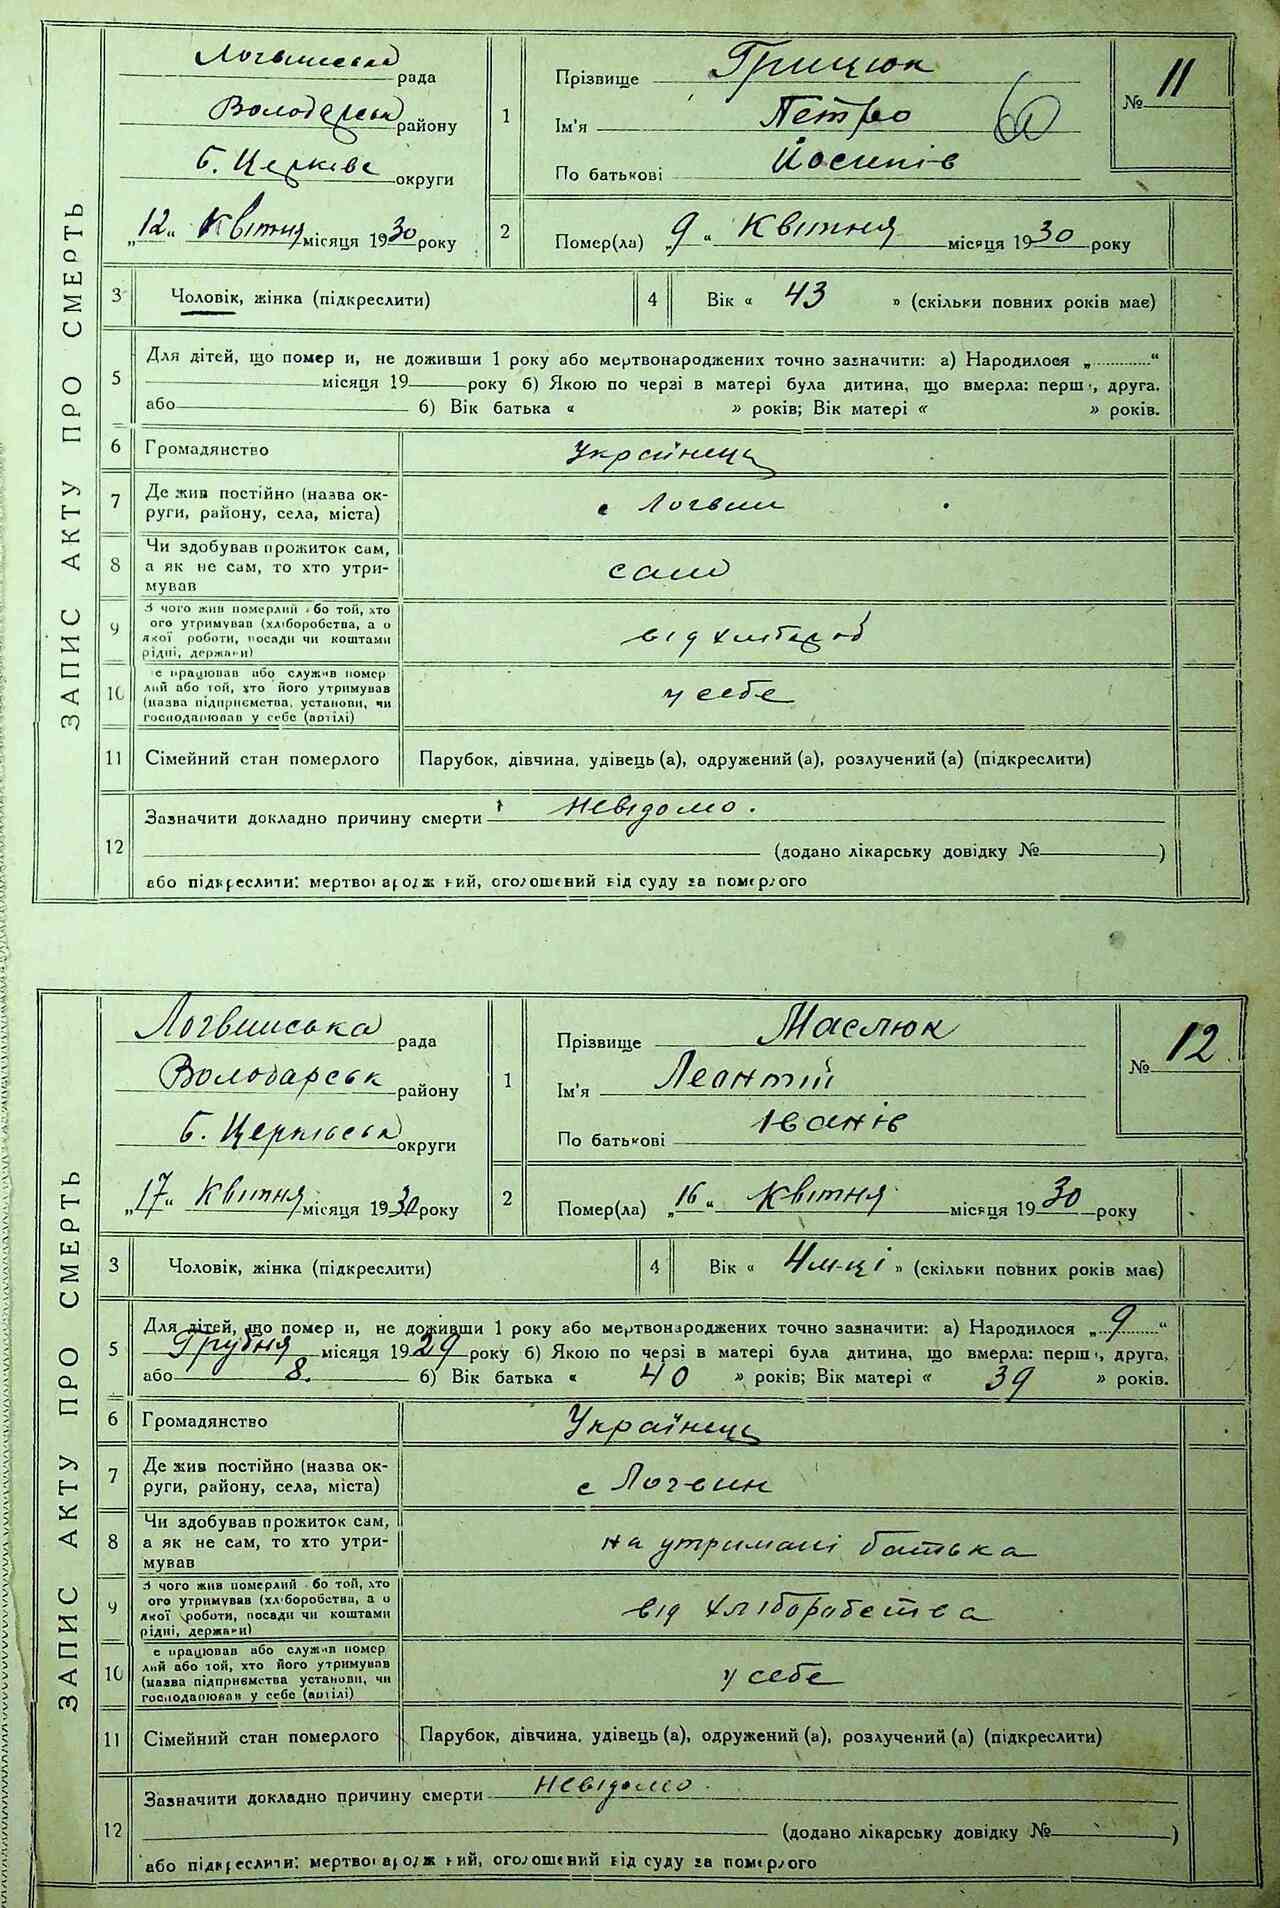 ЗАПИС АКТУ ПРО СМЕРТЬ
Логвинська рада
Володарськ району
Б. Церківс округи
„12“ Квітня місяця 1930 року
1
Прізвище Грицюк
Ім'я Петро
По батькові Йосипів
№ 11
2
Помер(ла) „9“ Квітня місяця 1930 року
3
Чоловік, жінка (підкреслити)
4
Вік « 43 » (скільки повних років має)
5
Для дітей, що помер и, не доживши 1 року або мертвонароджених точно зазначити: а) Народилося „ “
місяця 19 року б) Якою по черзі в матері була дитина, що вмерла: перш , друга,
або б) Вік батька « » років; Вік матері « » років.
6
Громадянство
Українець
7
Де жив постійно (назва ок-
руги, району, села, міста)
с Логвин
8
Чи здобував прожиток сам,
а як не сам, то хто утри-
мував
сам
9
З чого жив померлий бо той, хто
ого утримував (хліборобства, а о
якої роботи, посади чи коштами
рідні, держави)
від хлібороб
10
е працював або служив помер
лий або той, хто його утримував
(назва підприємства, установи, чи
господарював у себе (артілі)
у себе
11
Сімейний стан померлого
Парубок, дівчина, удівець (а), одружений (а), розлучений (а) (підкреслити)
12
Зазначити докладно причину смерти невідомо.
(додано лікарську довідку № )
або підкреслити: мертвонароджений, оголошений від суду за померлого
ЗАПИС АКТУ ПРО СМЕРТЬ
Логвинська рада
Володарськ району
Б. Церківськ округи
„17“ Квітня місяця 1930 року
1
Прізвище Маслюк
Ім'я Леонтій
По батькові Іванів
№ 12
2
Помер(ла) „16“ Квітня місяця 1930 року
3
Чоловік, жінка (підкреслити)
4
Вік « 4 м-ці » (скільки повних років має)
5
Для дітей, що помер и, не доживши 1 року або мертвонароджених точно зазначити: а) Народилося „9“
Грудня місяця 1929 року б) Якою по черзі в матері була дитина, що вмерла: перш , друга,
або 8. б) Вік батька « 40 » років; Вік матері « 39 » років.
6
Громадянство
Українець
7
Де жив постійно (назва ок-
руги, району, села, міста)
с Логвин
8
Чи здобував прожиток сам,
а як не сам, то хто утри-
мував
на утримані батька
9
З чого жив померлий бо той, хто
ого утримував (хліборобства, а о
якої роботи, посади чи коштами
рідні, держави)
від хліборобства
10
е працював або служив помер
лий або той, хто його утримував
(назва підприємства установи, чи
господарював у себе (артілі)
у себе
11
Сімейний стан померлого
Парубок, дівчина, удівець (а), одружений (а), розлучений (а) (підкреслити)
12
Зазначити докладно причину смерти невідомо.
(додано лікарську довідку № )
або підкреслити: мертвонароджений, оголошений від суду за померлого